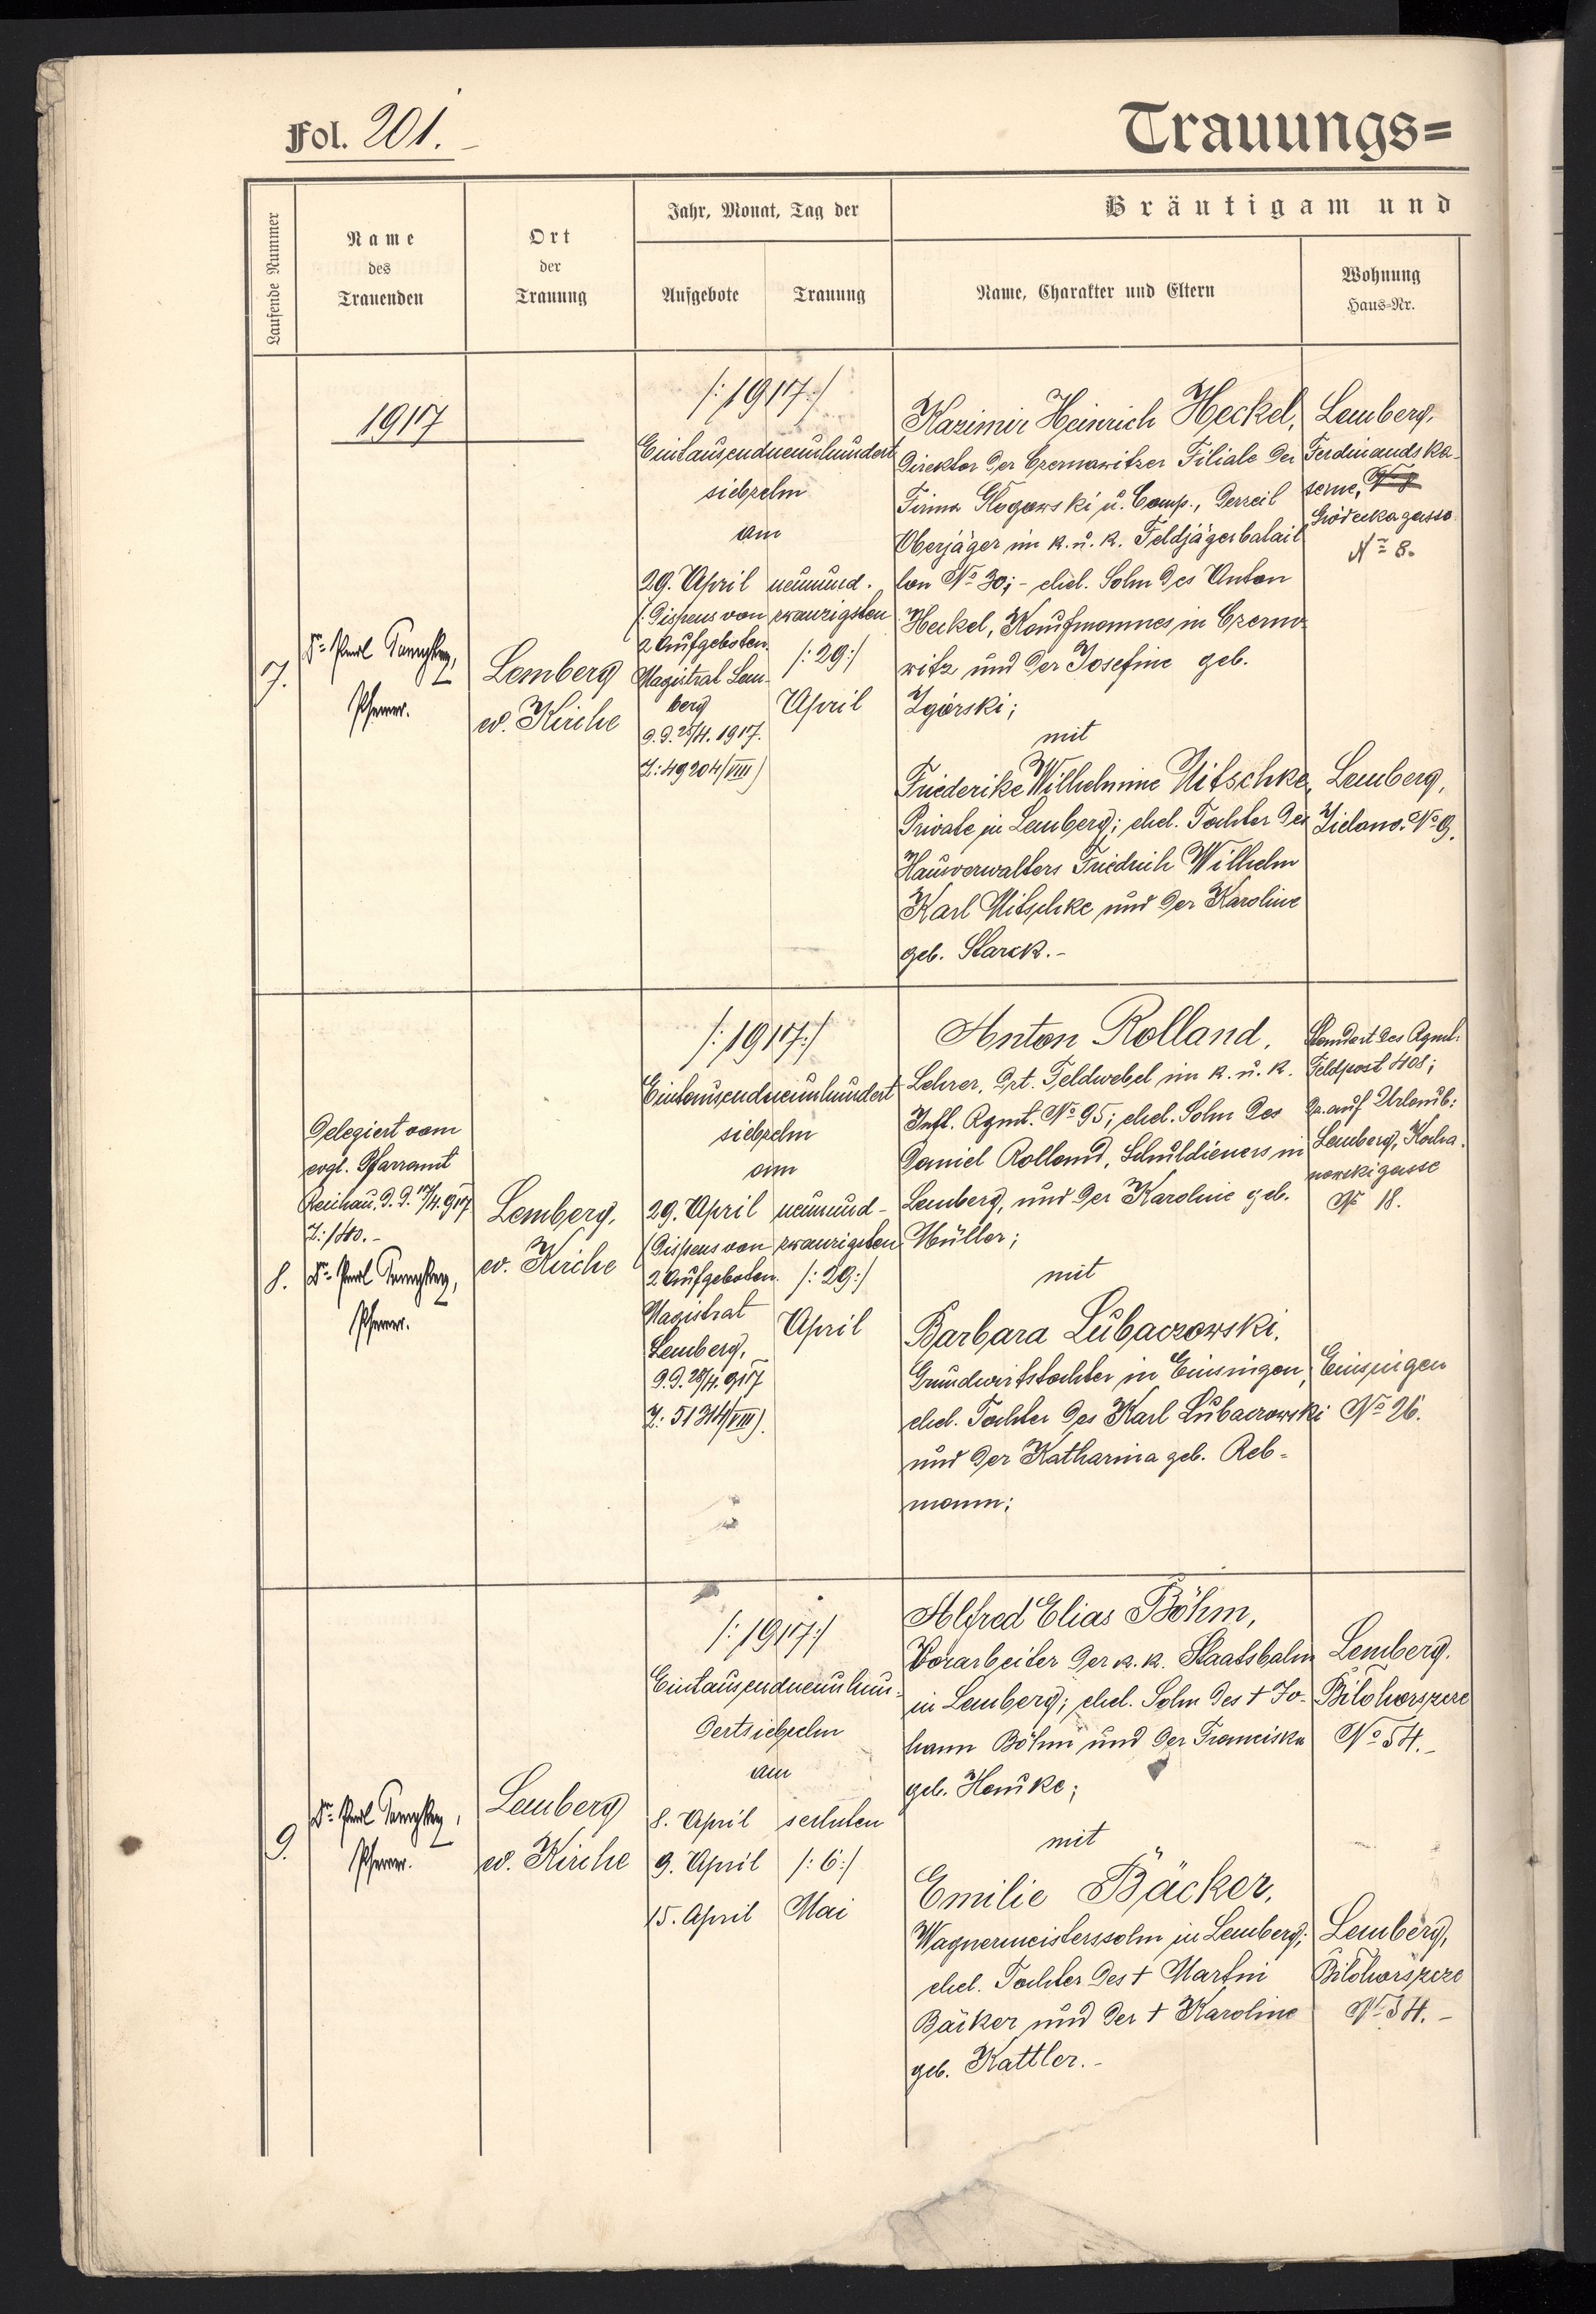 Fol. 201.
Trauungs=
Laufende Nummer
Name
des
Trauenden
Ort
der
Trauung
Jahr, Monat, Tag der
Aufgebote
Trauung
Bräutigam und
Name, Charakter und Eltern
Wohnung
Haus=Nr.
1917
7.
Pfarrer.
Lemberg
ev. Kirche
/:1917:/
Eintausendneunhundert
siebzehn
am
29. April
/:Dispens von
2 Aufgeboten.
Magistrat Lem-
berg
d.d. 25/4. 1917.
Z: 49204/VIII)
neunund-
zwanzigsten
/:29:/
April
Kazimir Heinrich Heckel,
Direktor der Czernowitzer Filiale der
Firma Glogowski u. Comp., derzeit
Oberjäger im k. u. k. Feldjägerbatail
lon No 30; - ehel. Sohn des Anton
Heckel, Kaufmannes in Czerno-
witz und der Josefine geb.
Zgórski;
mit
Friederike Wilhelmine Nitschke,
Private in Lemberg; ehel. Tochter des
Hausverwalters Friedrich Wilhelm
Karl Nitschke und der Karoline
geb. Starck. -
Lemberg,
Ferdinandska-
serne, No 8
Gródeckagasse
No 8.
Lemberg,
Zielona. No 9.
8.
Delegiert vom
evgl. Pfarramt
Reichau, d.d. 17/4. 917
Z: 140. -
Pfarrer.
Lemberg,
ev. Kirche
/:1917:/
Eintausendneunhundert
siebzehn
am
29. April
/Dispens von
2 Aufgeboten.
Magistrat
Lemberg,
d.d. 28/4. 917
Z: 51314/VIII).
neunund-
zwanzigsten
/:29:/
April
Anton Rolland,
Lehrer, drt. Feldwebel im k. u. k.
Inft. Rgmt. No 95; ehel. Sohn des
Daniel Rolland, Schuldieners in
Lemberg, und der Karoline geb.
Müller;
mit
Barbara Lubaczowski,
Grundwirtstochter in Einsingen,
ehel. Tochter des Karl Lubaczowski
und der Katharina geb. Reb-
mann;
Standort des Rgmt.
Feldpost 408;
Dz. auf Urlaub:
Lemberg, Kocha-
nowskigasse
No 18.
Einsingen
No 26.
9.
Pfarrer.
Lemberg
ev. Kirche
/:1917:/
Eintausendneunhun-
dertsiebzehn
am
8. April
9. April
15. April
sechsten
/:6:/
Mai
Alfred Elias Böhm,
Vorarbeiter der k. k. Staatsbahn
in Lemberg; ehel. Sohn des + Jo-
hann Böhm und der Franciska
geb. Hanuke;
mit
Emilie Bäcker,
Wagnermeisterssohn in Lemberg;
ehel. Tochter des + Martin
Bäcker und der + Karoline
geb. Kattler. -
Lemberg.
Bilohorszcze
No 54. -
Lemberg,
Bilohorszcze
No 54. -